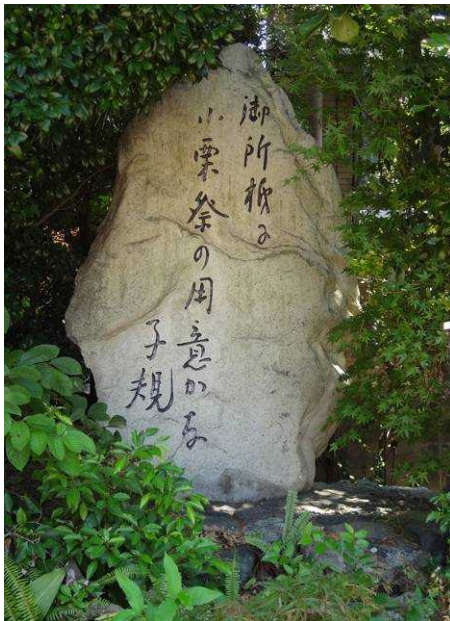 御所柿に
小栗祭の用意かな
子規